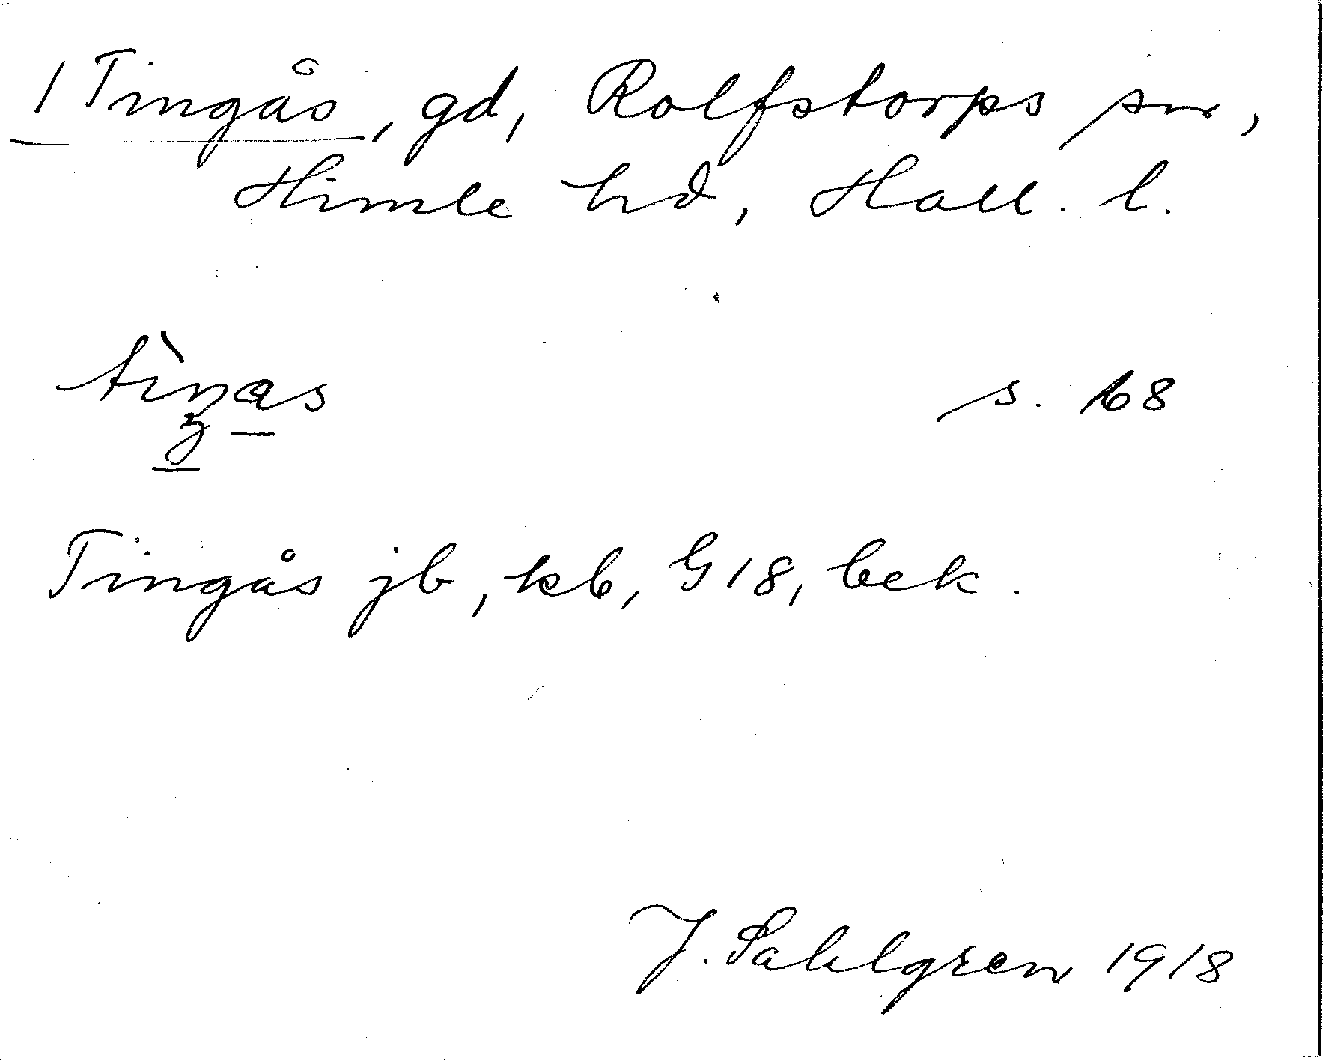 1 Tingås, gd, Rolfstorps sn,
Himle hd, Hall. l.
s. 68
Tingås jb, kb, G18, bek.
J. Sahlgren 1918